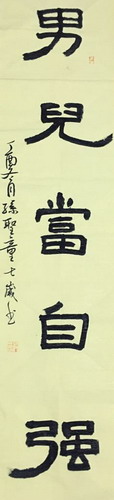 男兒當自强
丁酉冬月孫聖童七歲書